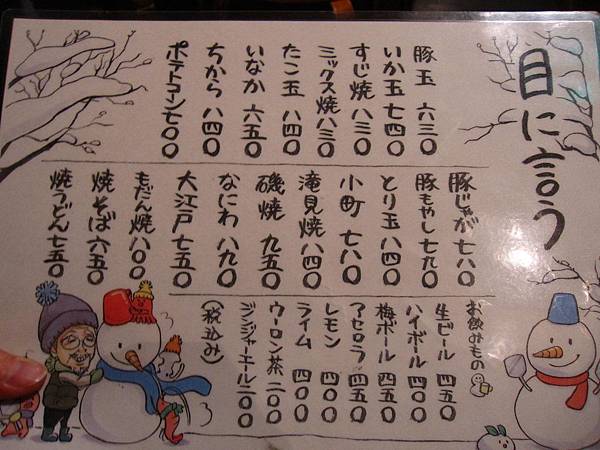 目に言う
豚玉 六三〇
いか玉 七四〇
すじ焼 八三〇
ミックス焼 八三〇
たこ玉 八四〇
いなか 六五〇
ちから 八四〇
ポテトコーン 七〇〇
豚じゃが 七八〇
豚もやし 七九〇
とり玉 八四〇
小町 七八〇
滝見焼 八四〇
磯焼 九五〇
なにわ 八九〇
大江戸 七五〇
もだん焼 八〇〇
焼そば 六五〇
焼うどん 七五〇
お飲みもの
生ビール 四五〇
ハイボール 四〇〇
梅ボール 四五〇
アセロラ 四五〇
レモン 四〇〇
ライム 四〇〇
ウーロン茶 二〇〇
ジンジャーエール 二〇〇
(税込み)